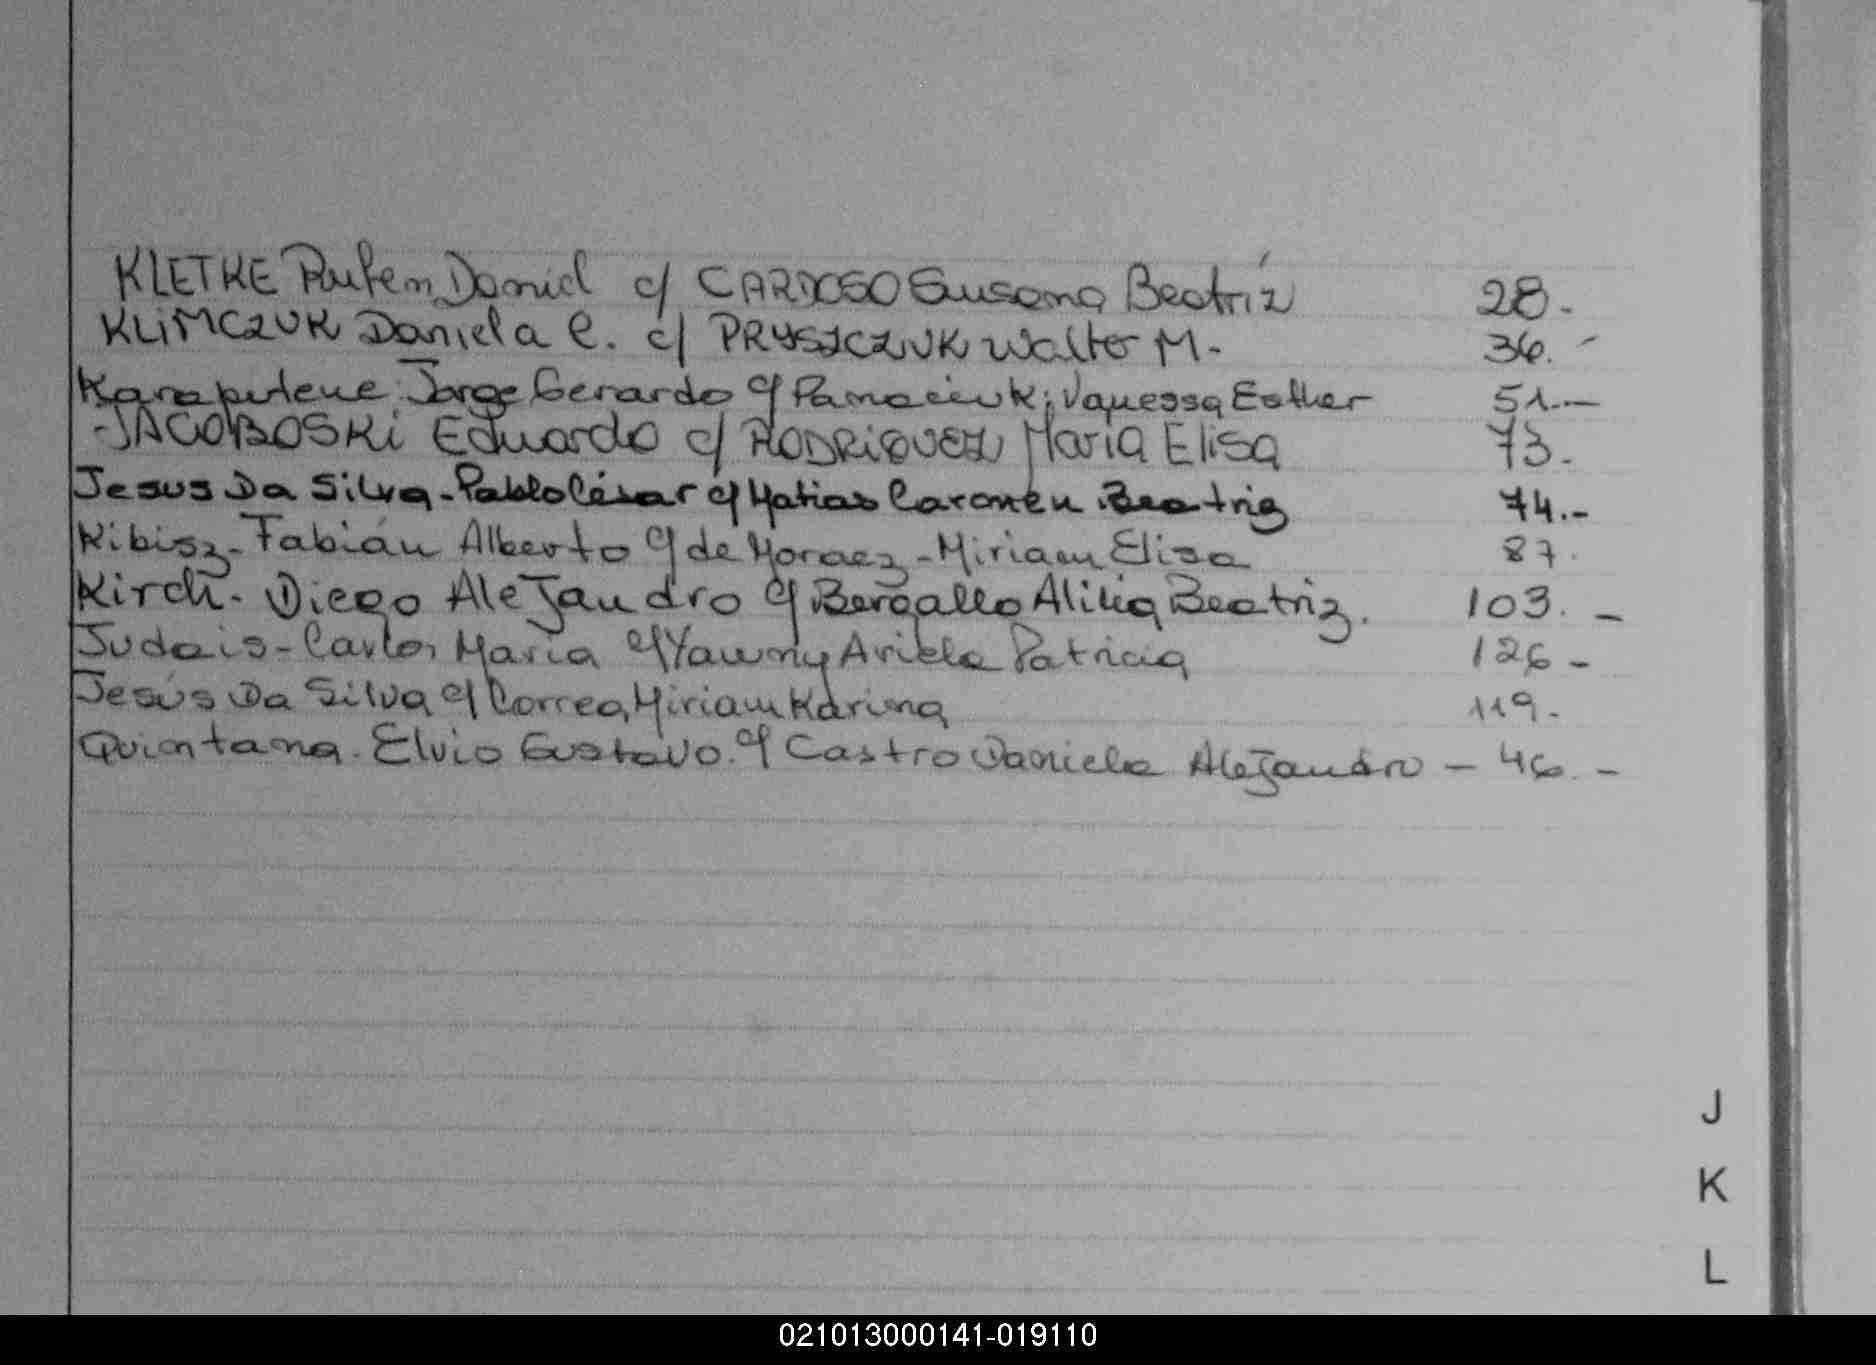 KLETKE Ruben Daniel c/ CARDOSO Susana Beatríz 28.-
KLIMCZUK Daniela C. c/ PRYSZCZUK Walter M. 36.-
Jorge Gerardo c/ Vanessa Esther 51.-
-JACOBOSKi Eduardo c/ RODRIGUEZ María Elisa 73.
Jesus Da Silva - Pablo César c/ Matias Carmen Beatriz 74.-
Kibisz - Fabián Alberto c/ de Moraez - Miriam Elisa 87.
Kirch - Diego AleJandro c/ Bergallo Beatriz. 103.-
Judais - Carlos María c/ Yawny Ariela Patricia 126-
Jesús Da Silva c/ Correa, Miriam Karina 119.-
Quintana. Elvio Gustavo. c/ Castro Daniela AleJandra - 46.-
J
K
L
021013000141-019110